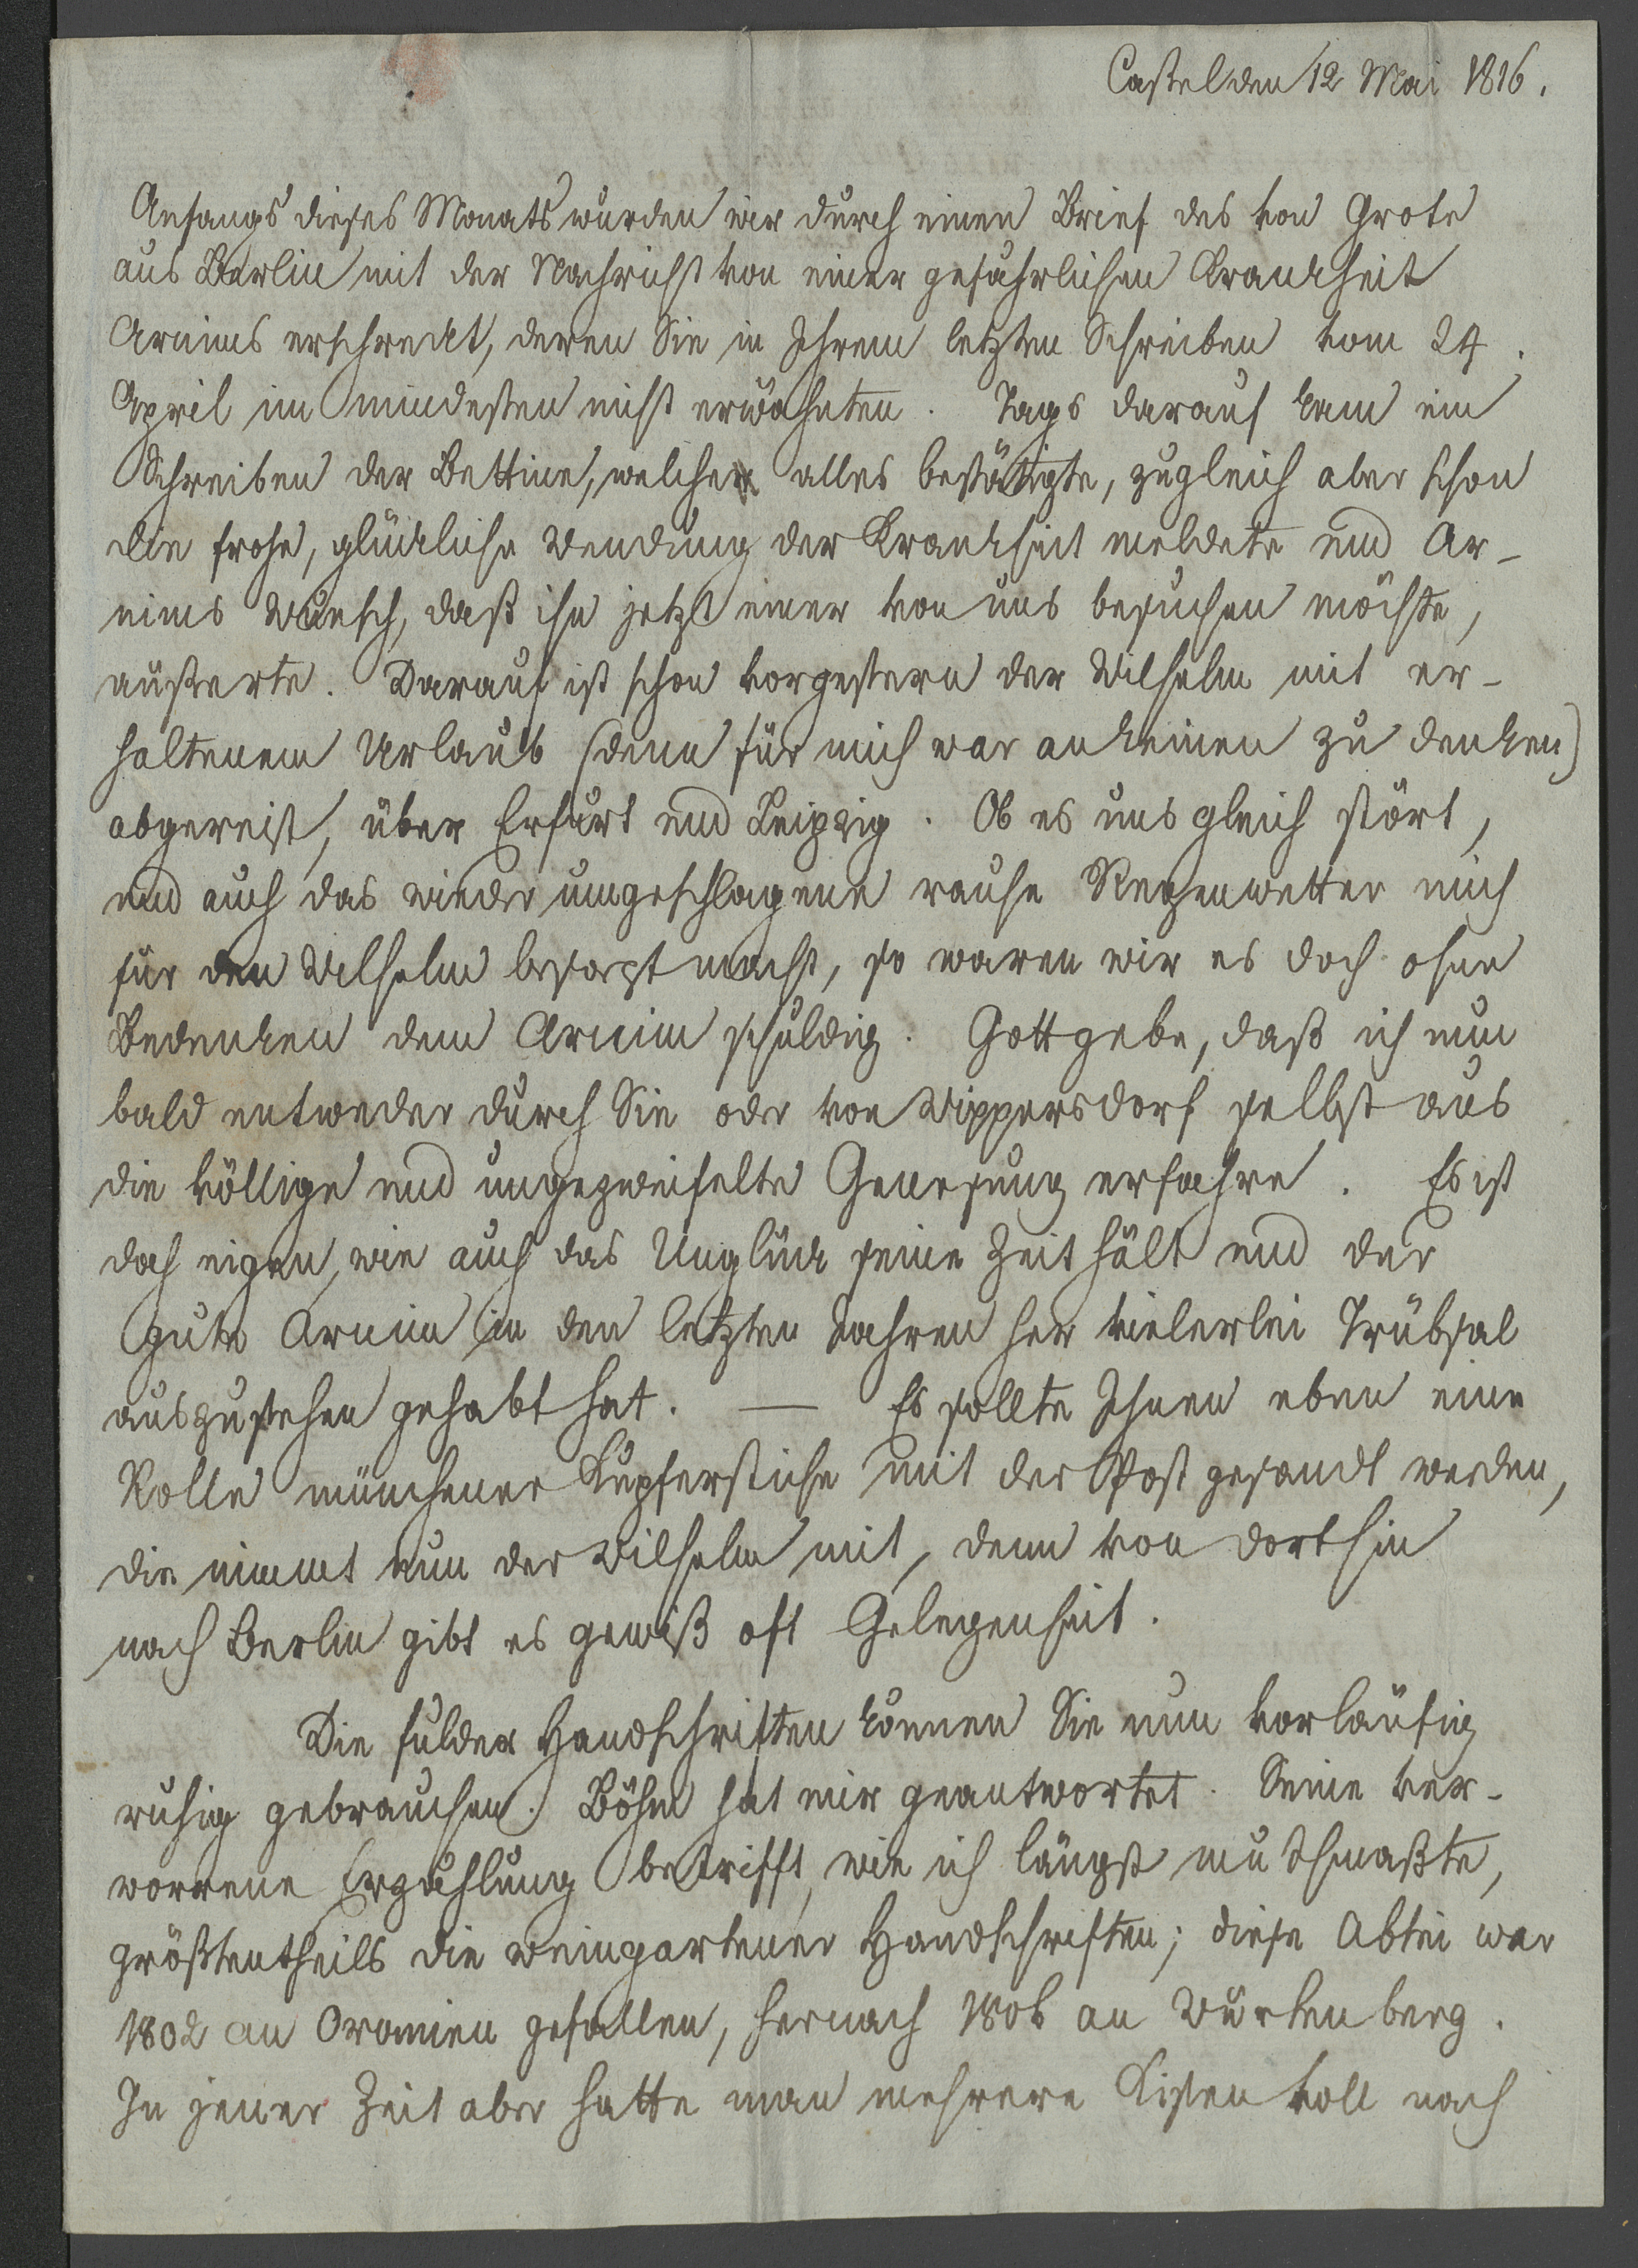 Cassel den 12 Mai 1816.
Anfangs dieses Monats wurden wir durch einen Brief des von Grote
aus Berlin mit der Nachricht von einer gefährlichen Krankheit
Arnims erschreckt, deren Sie in Ihrem letzten Schreiben vom 24.
April im mindesten nicht erwähnten. Tags darauf kam ein
Schreiben der Bettine, welches alles bestätigte, zugleich aber schon
die frohe, glückliche Wendung der Krankheit meldete und Ar-
nims Wunsch, daß ihn jetzt einer von uns besuchen möchte,
äußerte. Darauf ist schon vorgestern der Wilhelm mit er-
haltenem Urlaub (denn für mich war an keinen zu denken)
abgereist, über Erfurt und Leipzig. Ob es uns gleich stört,
und auch das wieder umgeschlagene rauhe Regenwetter mich
für den Wilhelm besorgt macht, so waren wir es doch ohne
Bedenken dem Arnim schuldig. Gott gebe, daß ich nun
bald entweder durch Sie oder von Wippersdorf selbst aus
die völlige und ungezweifelte Genesung erfahre. Es ist
doch eigen, wie auch das Unglück seine Zeit hält und der
gute Arnim in den letzten Jahren her vielerlei Trübsal
auszustehen gehabt hat. — Es sollte Ihnen eben eine
Rolle münchener Kupferstiche mit der Post gesandt werden,
die nimmt nun der Wilhelm mit, denn von dorthin
nach Berlin gibt es gewiß oft Gelegenheit.
Die fulder Handschriften können Sie nun vorläufig
ruhig gebrauchen. Böhm hat mir geantwortet. Seine ver-
worrene Erzählung betrifft, wie ich längst muthmaßte,
größtentheils die weingartener Handschriften; diese Abtei war
1802 an Oranien gefallen, hernach 1806 an Würtenberg.
In jener Zeit aber hatte man mehrere Kisten voll nach